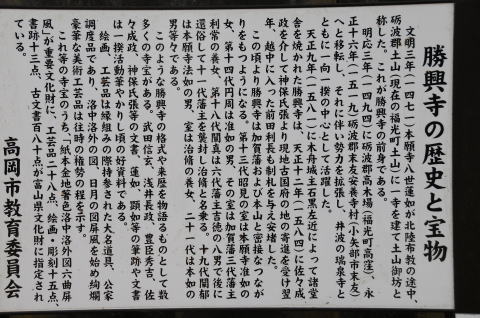 勝興寺の歴史と宝物
文明三年(一四七一)本願寺八世蓮如が北陸布教の途中、
砺波郡土山(現在の福光町土山)に一寺を建て土山御坊と
称した。これが勝興寺の前身である。
明応三年(一四九四)に砺波郡高木場(福光町高窪)、永
正十六年(一五一九)砺波郡末友安養寺村(小矢部市末友)
へと移転し、それに伴い勢力を拡張し、井波の瑞泉寺と
ともに一向一揆の中心として活躍した。
天正九年(一五八一)に木舟城主石黒左近によって諸堂
舎を焼かれた勝興寺は、天正十二年(一五八四)に佐々成
政を介して神保氏張より現地古国府の地の寄進を受け翌
年、越中に入った前田利長も制札を与え安堵した。
この頃より勝興寺は加賀藩および本山と密接なつなが
りをもつようになる。第十三代昭見の室は本願寺准如の
女、第十四代円周は准如の男、その室は加賀藩三代藩主
利常の養女、第十八代闡真は六代藩主吉徳の八男で後に
還俗して十一代藩主を襲封し治脩と名乗る。十九代闡郁
は本願寺法如の男、室は治脩の養女、二十一代は本如の
男等々である。
このような勝興寺の格式や来歴を物語るものとして数
多くの寺宝がある。武田信玄、浅井長政、豊臣秀吉、佐
々成政、神保氏張等の文書、蓮如、顕如等の筆跡や文書
は一揆活動華やかりし頃の好資料である。
絵画、工芸品は縁組みの際持参された大名道具、公家
調度品であり、洛中洛外の図、日月の図屏風を始め絢爛
豪華な美術工芸品は往時の権勢の程を示す。
これ等の寺宝のうち、紙本金地著色洛中洛外図六曲屏
風」が重要文化財に、工芸品二十八点、絵画・彫刻十五点、
書跡十三点、古文書百八十点が富山県文化財に指定され
ている。
高岡市教育委員会